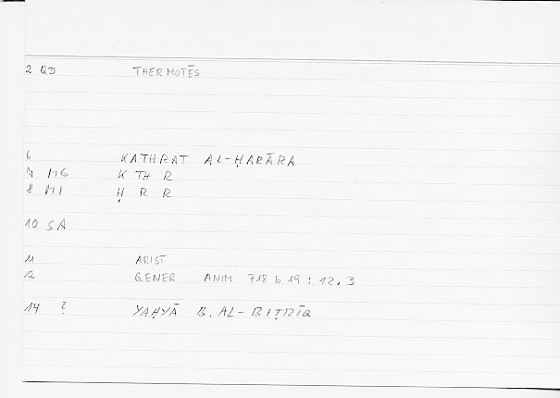 2 QD THERMOTĒS
6 KATHRAT AL-ḤARĀRA
7 MG K TH R
8 MI Ḥ R R
10 SA
11 ARIST
12 GENER ANIM 718 b 19 : 12.3
14 ? YAḤYĀ B. AL-BIṬRĪQ